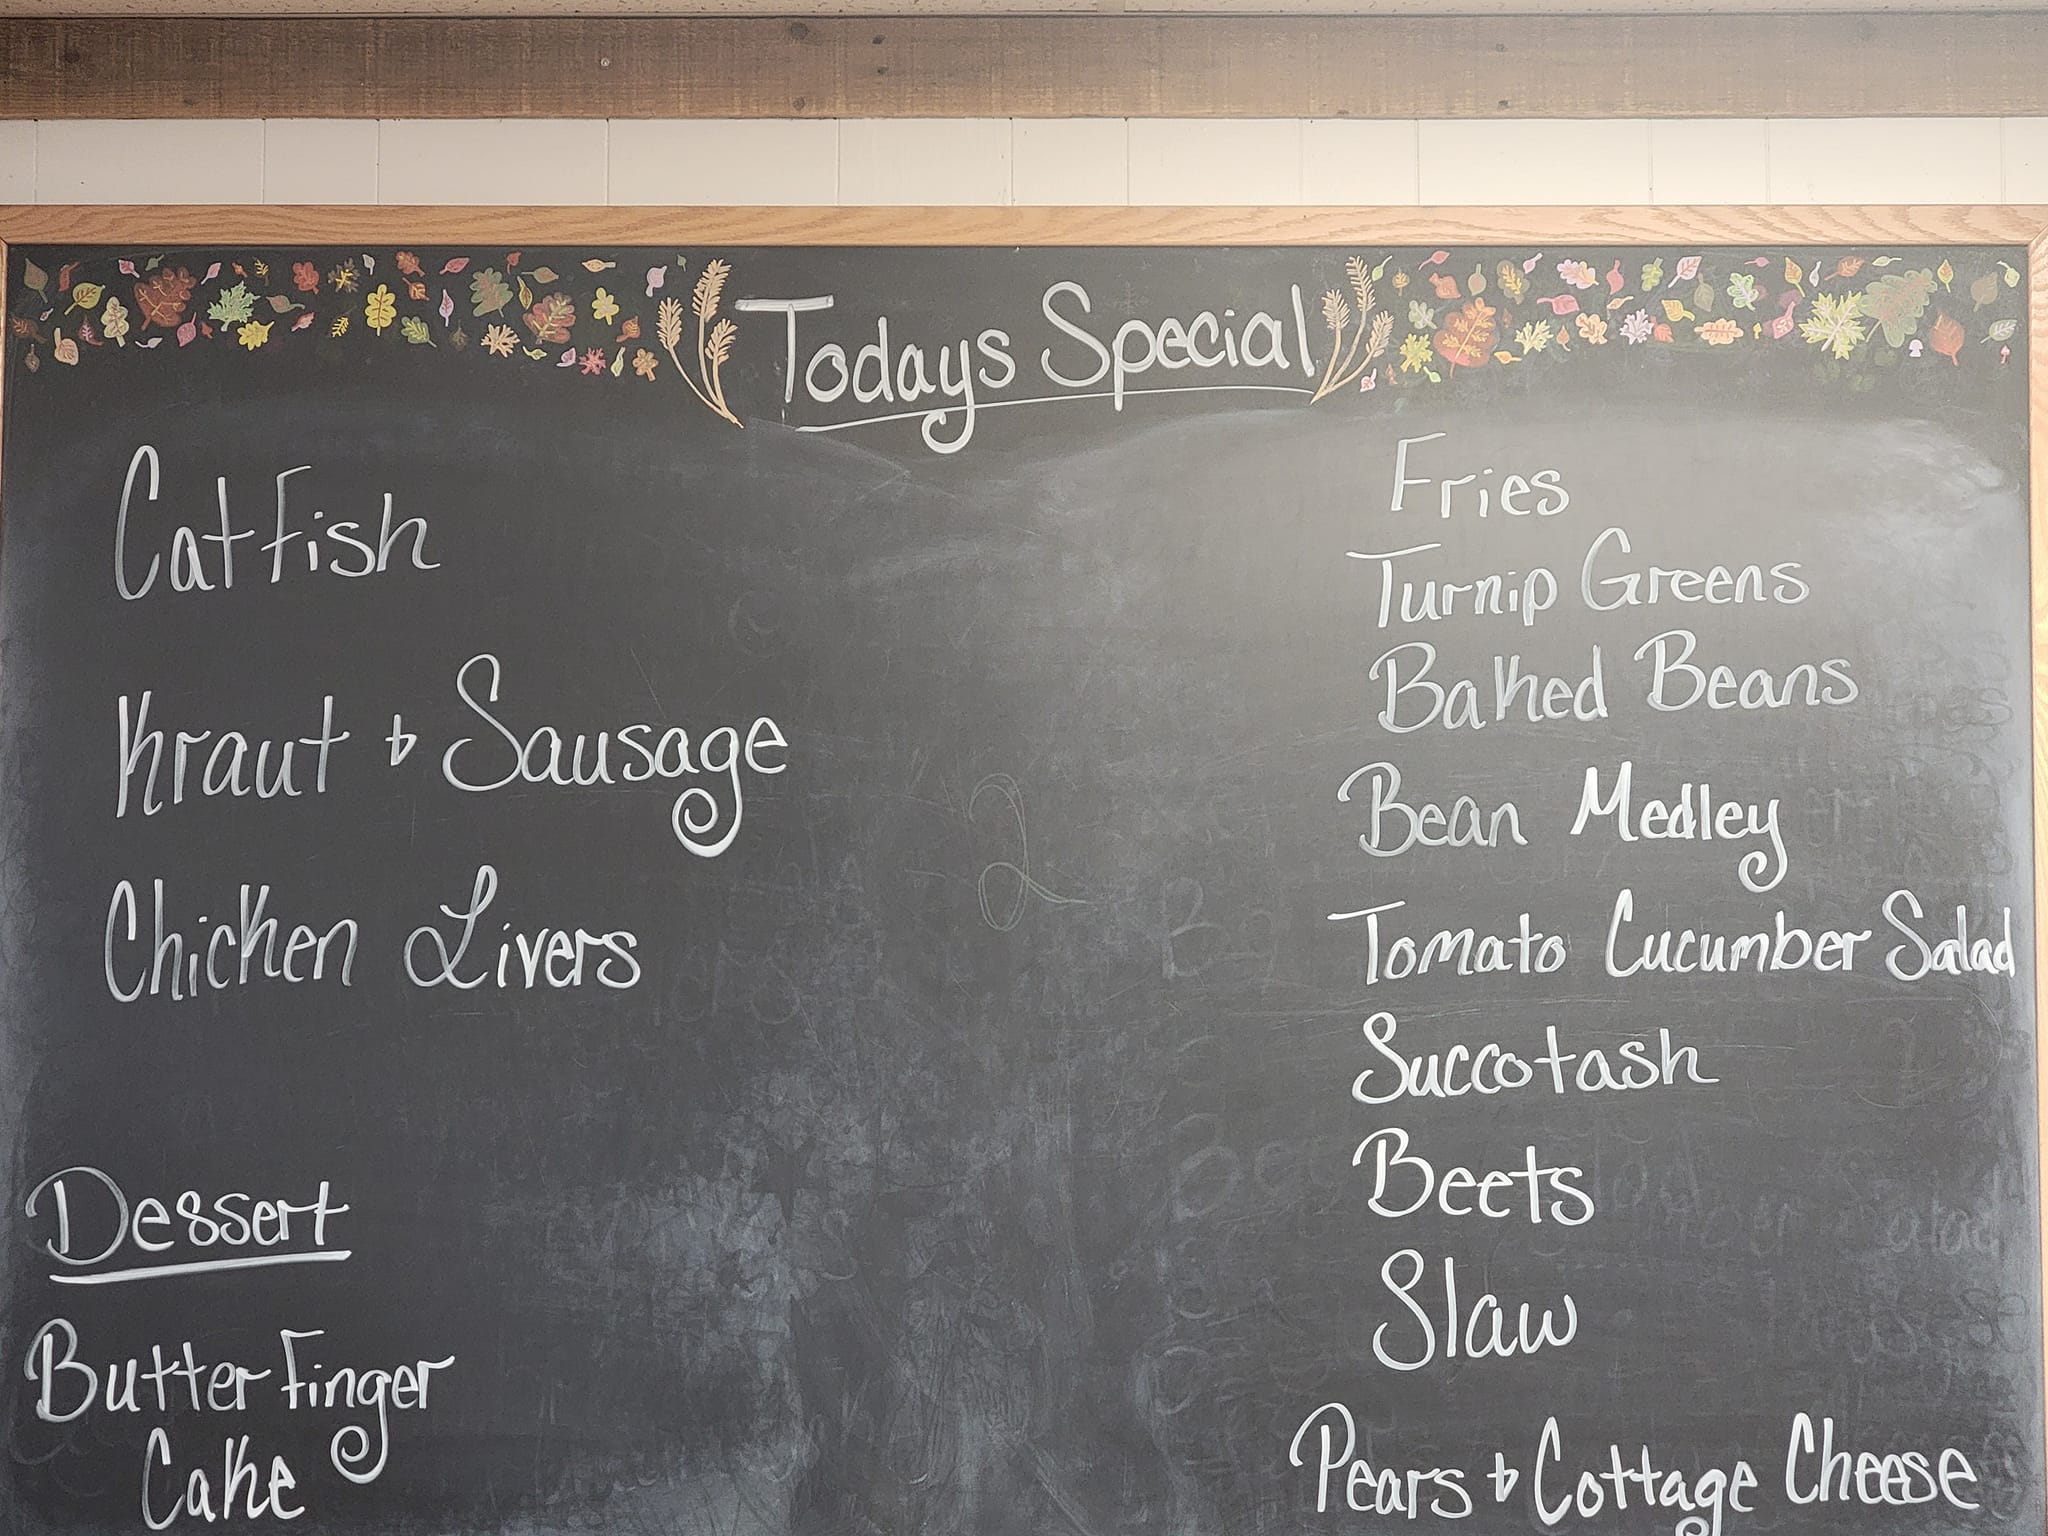 Todays Special
Catfish
Kraut & Sausage
Chicken Livers
Dessert
Butterfinger
Cake
Fries
Turnip Greens
Baked Beans
Bean Medley
Tomato Cucumber Salad
Succotash
Beets
Slaw
Pears & Cottage Cheese